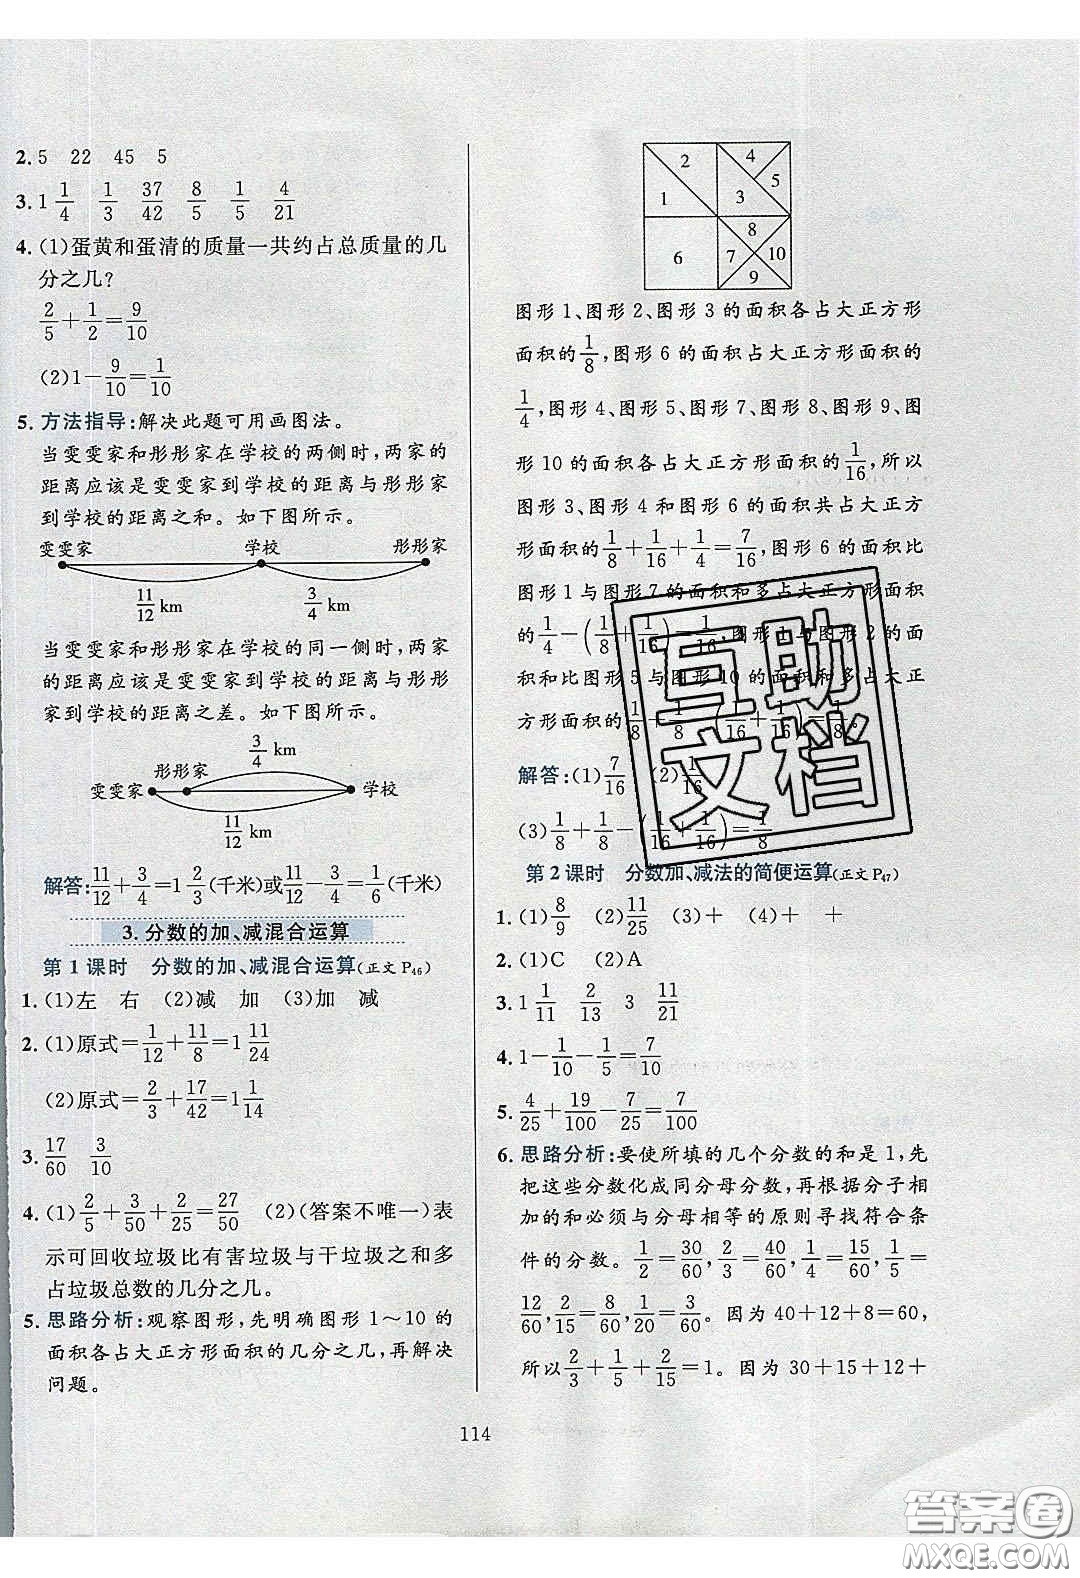 2. 5 22 45 5
3. 1 1/4 1/3 37/42 8/5 1/5 4/21
4. (1)蛋黄和蛋清的质量一共约占总质量的几
分之几?
2/5+1/2=9/10
(2)1-9/10=1/10
5. 方法指导:解决此题可用画图法。
当雯雯家和彤彤家在学校的两侧时,两家的
距离应该是雯雯家到学校的距离与彤彤家
到学校的距离之和。如下图所示。
雯雯家 学校 彤彤家
11/12 km 3/4 km
当雯雯家和彤彤家在学校的同一侧时,两家
的距离应该是雯雯家到学校的距离与彤彤
家到学校的距离之差。如下图所示。
3/4 km
彤彤家
雯雯家 学校
11/12 km
解答:11/12+3/4=1 2/3(千米)或11/12-3/4=1/6(千米)
3. 分数的加、减混合运算
第 1 课时 分数的加、减混合运算(正文 P46)
1. (1)左 右 (2)减 加 (3)加 减
2. (1)原式=1/12+11/8=1 11/24
(2)原式=2/3+17/42=1 1/14
3. 17/60 3/10
4. (1)2/5+3/50+2/25=27/50 (2)(答案不唯一)表
示可回收垃圾比有害垃圾与干垃圾之和多
占垃圾总数的几分之几。
5. 思路分析:观察图形,先明确图形 1～10 的
面积各占大正方形面积的几分之几,再解决
问题。
2 4
5
1 3
8
6 7 10
9
图形 1、图形 2、图形 3 的面积各占大正方形
面积的1/8,图形 6 的面积占大正方形面积的
1/4,图形 4、图形 5、图形 7、图形 8、图形 9、图
形 10 的面积各占大正方形面积的1/16,所以
图形 3、图形 4 和图形 6 的面积共占大正方
形面积的1/8+1/16+1/4=7/16,图形 6 的面积比
图形 1 与图形 7 的面积和多占大正方形面积
的1/4-(1/8+1/16)=1/16,图形 1 与图形 2 的面
积和比图形 5 与图形 10 的面积和多占大正
方形面积的1/8+1/8-(1/16+1/16)=1/8。
解答:(1)7/16 (2)1/16
(3)1/8+1/8-(1/16+1/16)=1/8
第 2 课时 分数加、减法的简便运算(正文 P47)
1. (1)8/9 (2)11/25 (3)+ (4)+ +
2. (1)C (2)A
3. 1 1/11 2/13 3 11/21
4. 1-1/10-1/5=7/10
5. 4/25+19/100-7/25=7/100
6. 思路分析:要使所填的几个分数的和是 1,先
把这些分数化成同分母分数,再根据分子相
加的和必须与分母相等的原则寻找符合条
件的分数。1/2=30/60,2/3=40/60,1/4=15/60,1/5=
12/60,2/15=8/60,1/6=10/60,1/20=3/60。因为 40+12+8=60,
所以2/3+1/5+2/15=1。因为 30+15+12+
114
互助
文档
答案圈
MXQE.COM